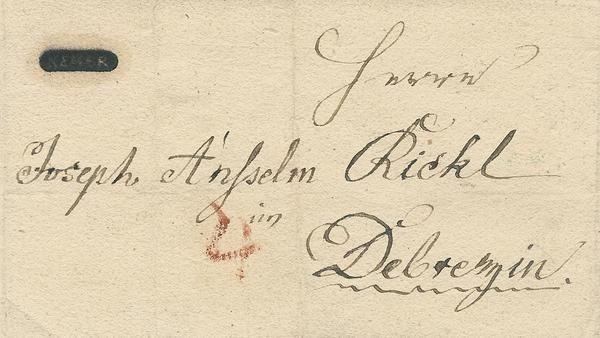 Herrn
Joseph Anſselm Rickl
in
Debrezin.